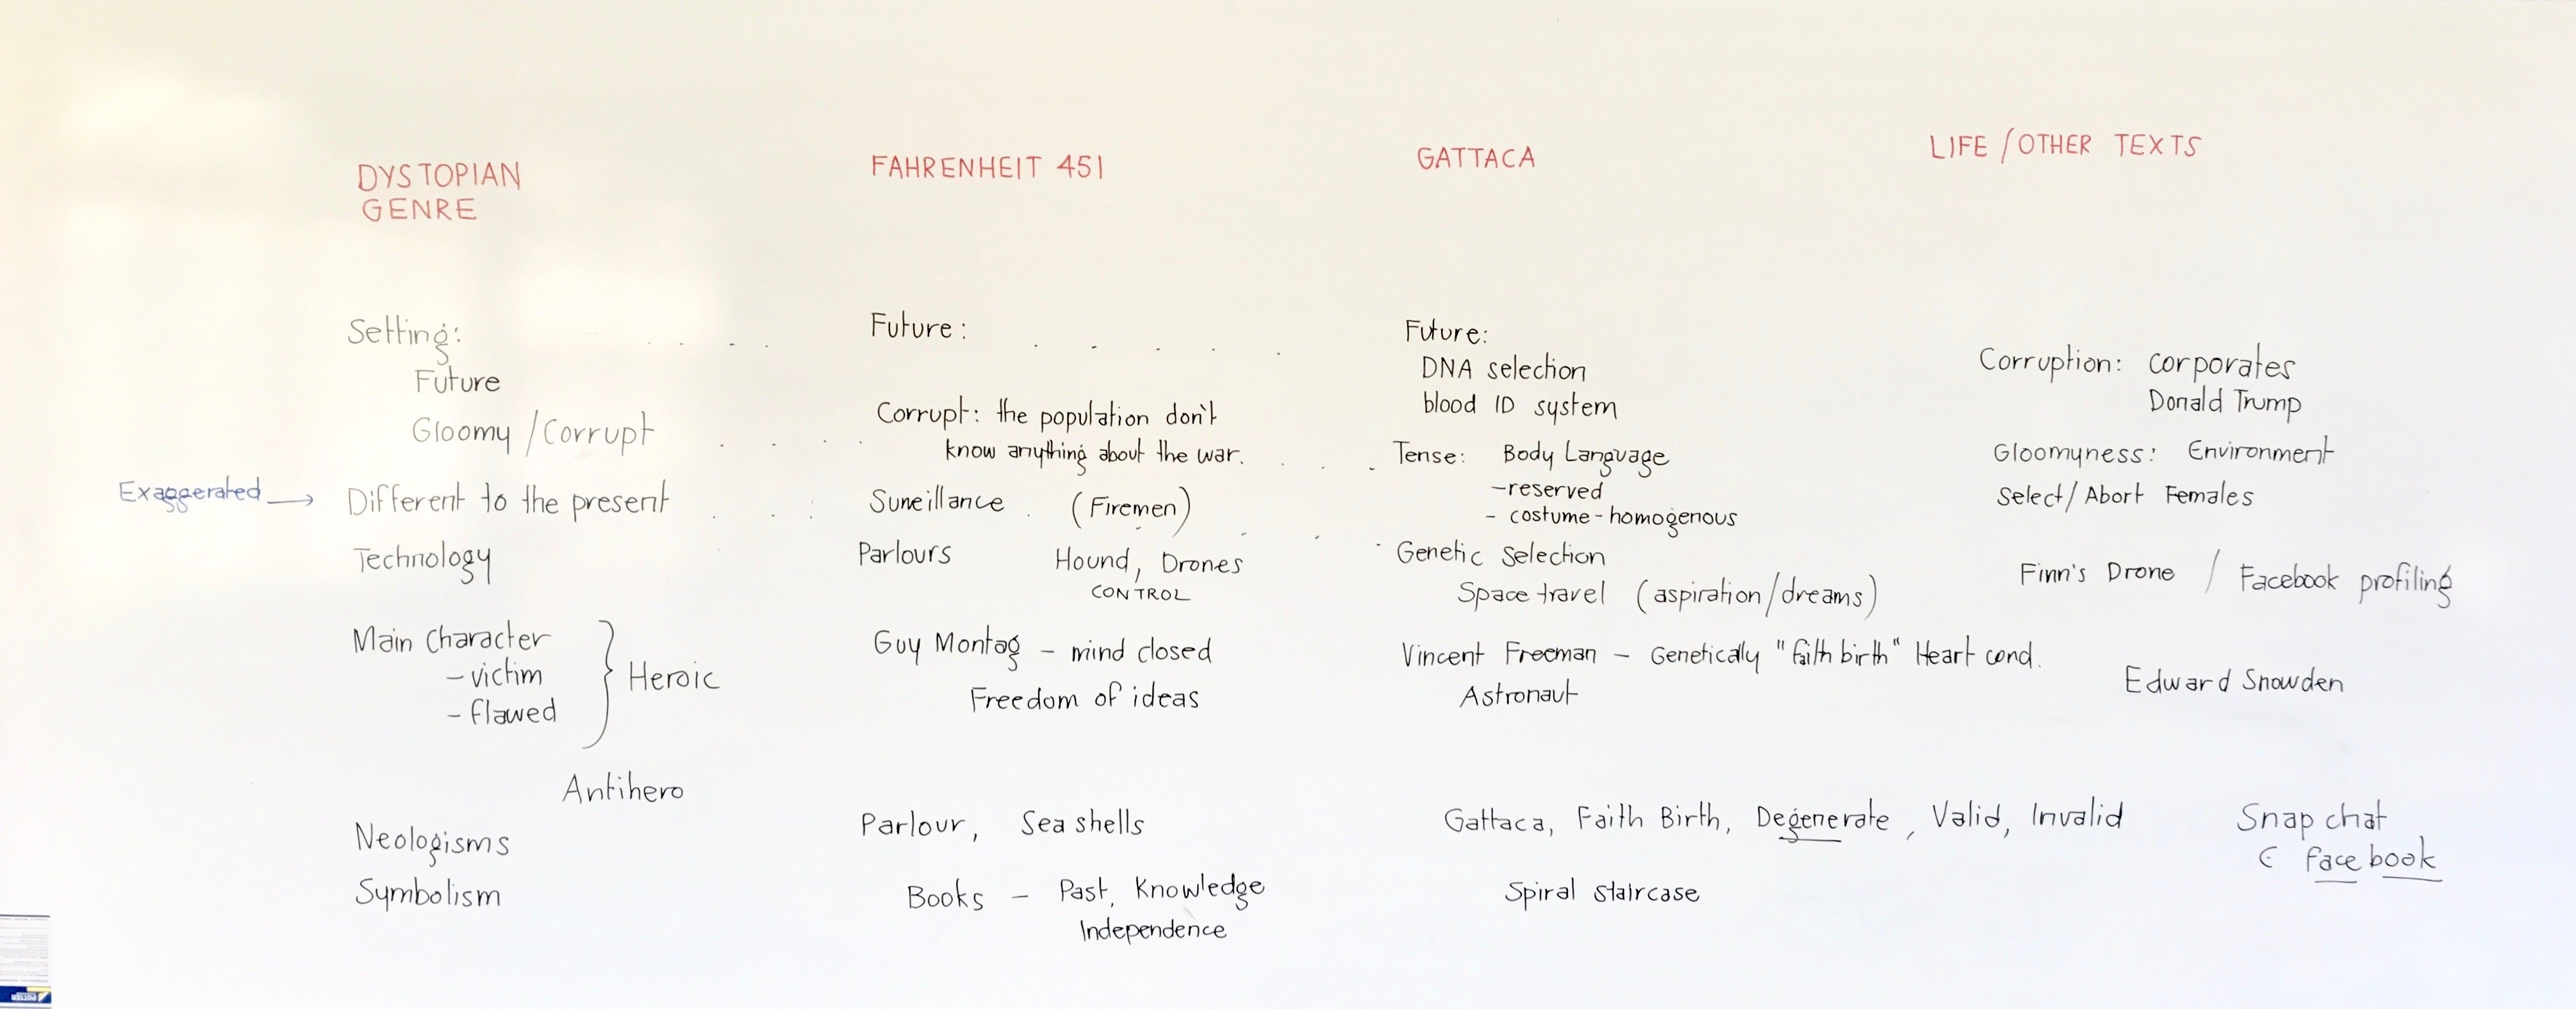 DYSTOPIAN
GENRE
Setting:
Future
Gloomy / Corrupt
Exaggerated →
Different to the present
Technology
Main Character
- victim
- flawed
} Heroic
Antihero
Neologisms
Symbolism
FAHRENHEIT 451
Future:
Corrupt: the population don't
know anything about the war.
Surveillance (Firemen)
Parlours Hound, Drones
CONTROL
Guy Montag - mind closed
Freedom of ideas
Parlour, Sea shells
Books - Past, Knowledge
Independence
GATTACA
Future:
DNA selection
blood ID system
Tense: Body Language
- reserved
- costume - homogenous
Genetic Selection
Space travel (aspiration/dreams)
Vincent Freeman - Genetically "faith birth" Heart cond.
Astronaut
Gattaca, Faith Birth, Degenerate, Valid, Invalid
Spiral staircase
LIFE / OTHER TEXTS
Corruption: corporates
Donald Trump
Gloomyness: Environment
Select/Abort Females
Finn's Drone / Facebook profiling
Edward Snowden
Snap chat
facebook